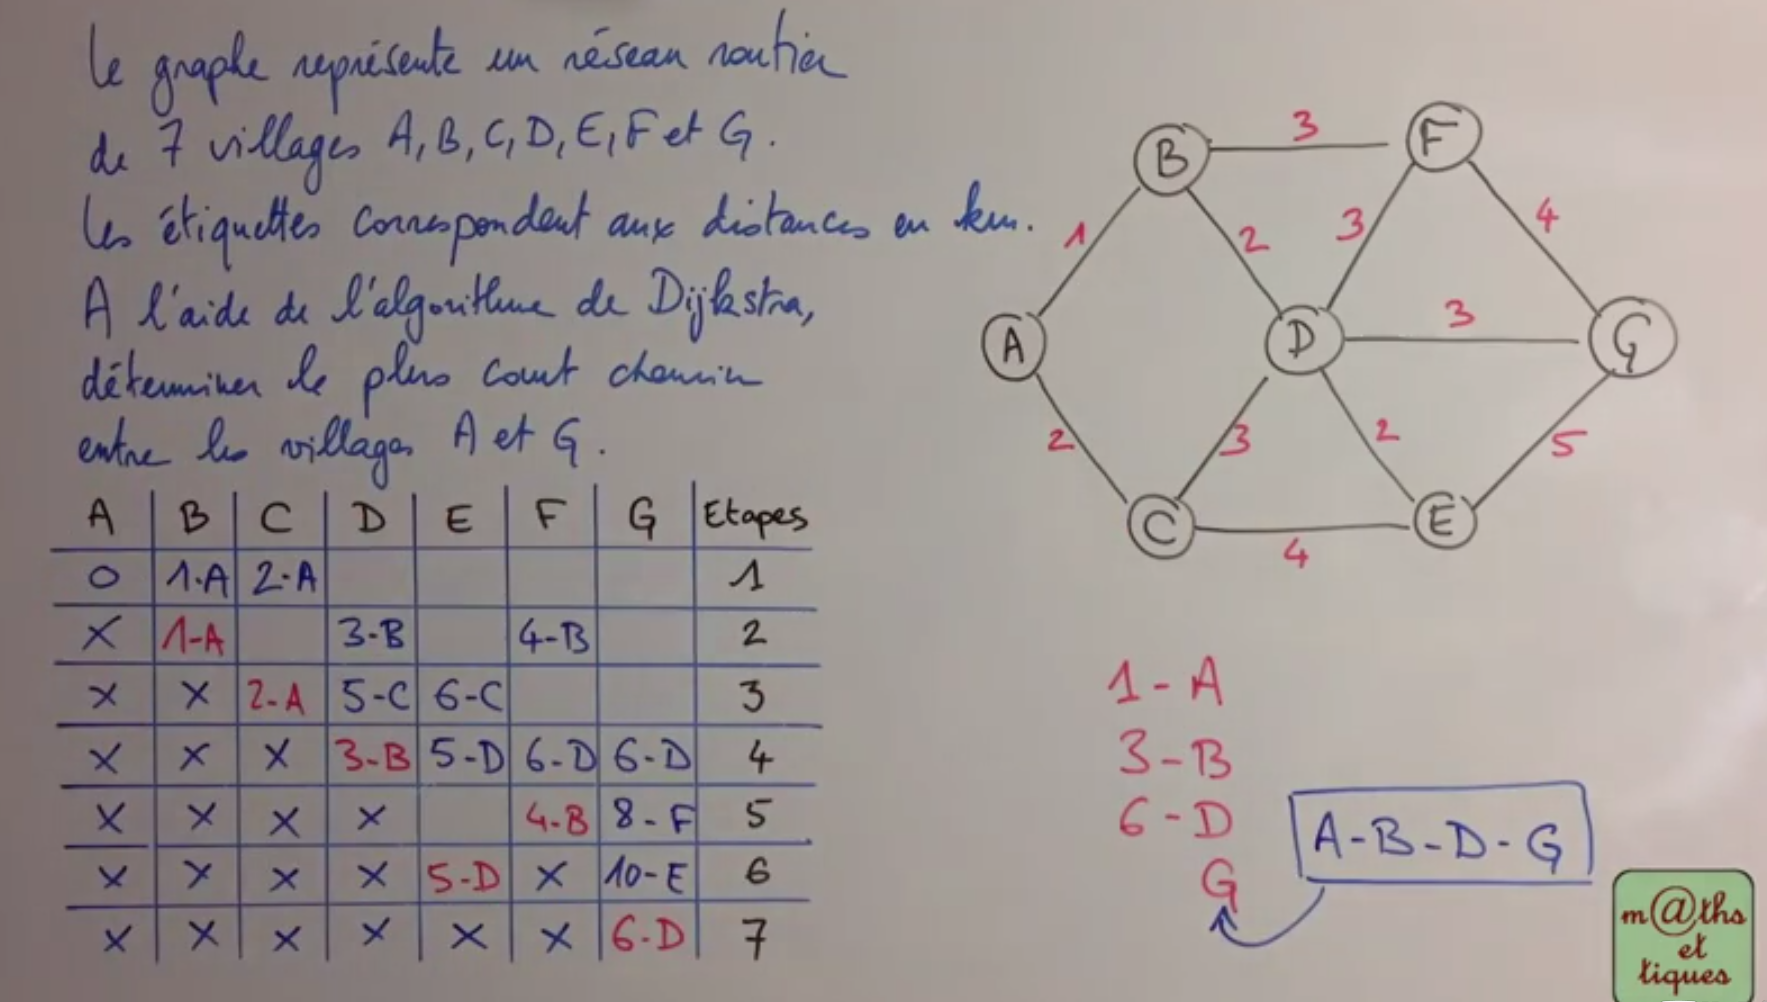 Le graphe représente un réseau routier
de 7 villages A, B, C, D, E, F et G.
Les étiquettes correspondent aux distances en km.
A l'aide de l'algorithme de Dijkstra,
déterminer le plus court chemin
entre les villages A et G.
A B C D E F G Etapes
0 1-A 2-A 1
X 1-A 3-B 4-B 2
X X 2-A 5-C 6-C 3
X X X 3-B 5-D 6-D 6-D 4
X X X X 4-B 8-F 5
X X X X 5-D X 10-E 6
X X X X X X 6-D 7
B 3 F
1 2 3 4
A D 3 G
2 3 2 5
C 4 E
1-A
3-B
6-D
G
A-B-D-G
m@ths
et
tiques